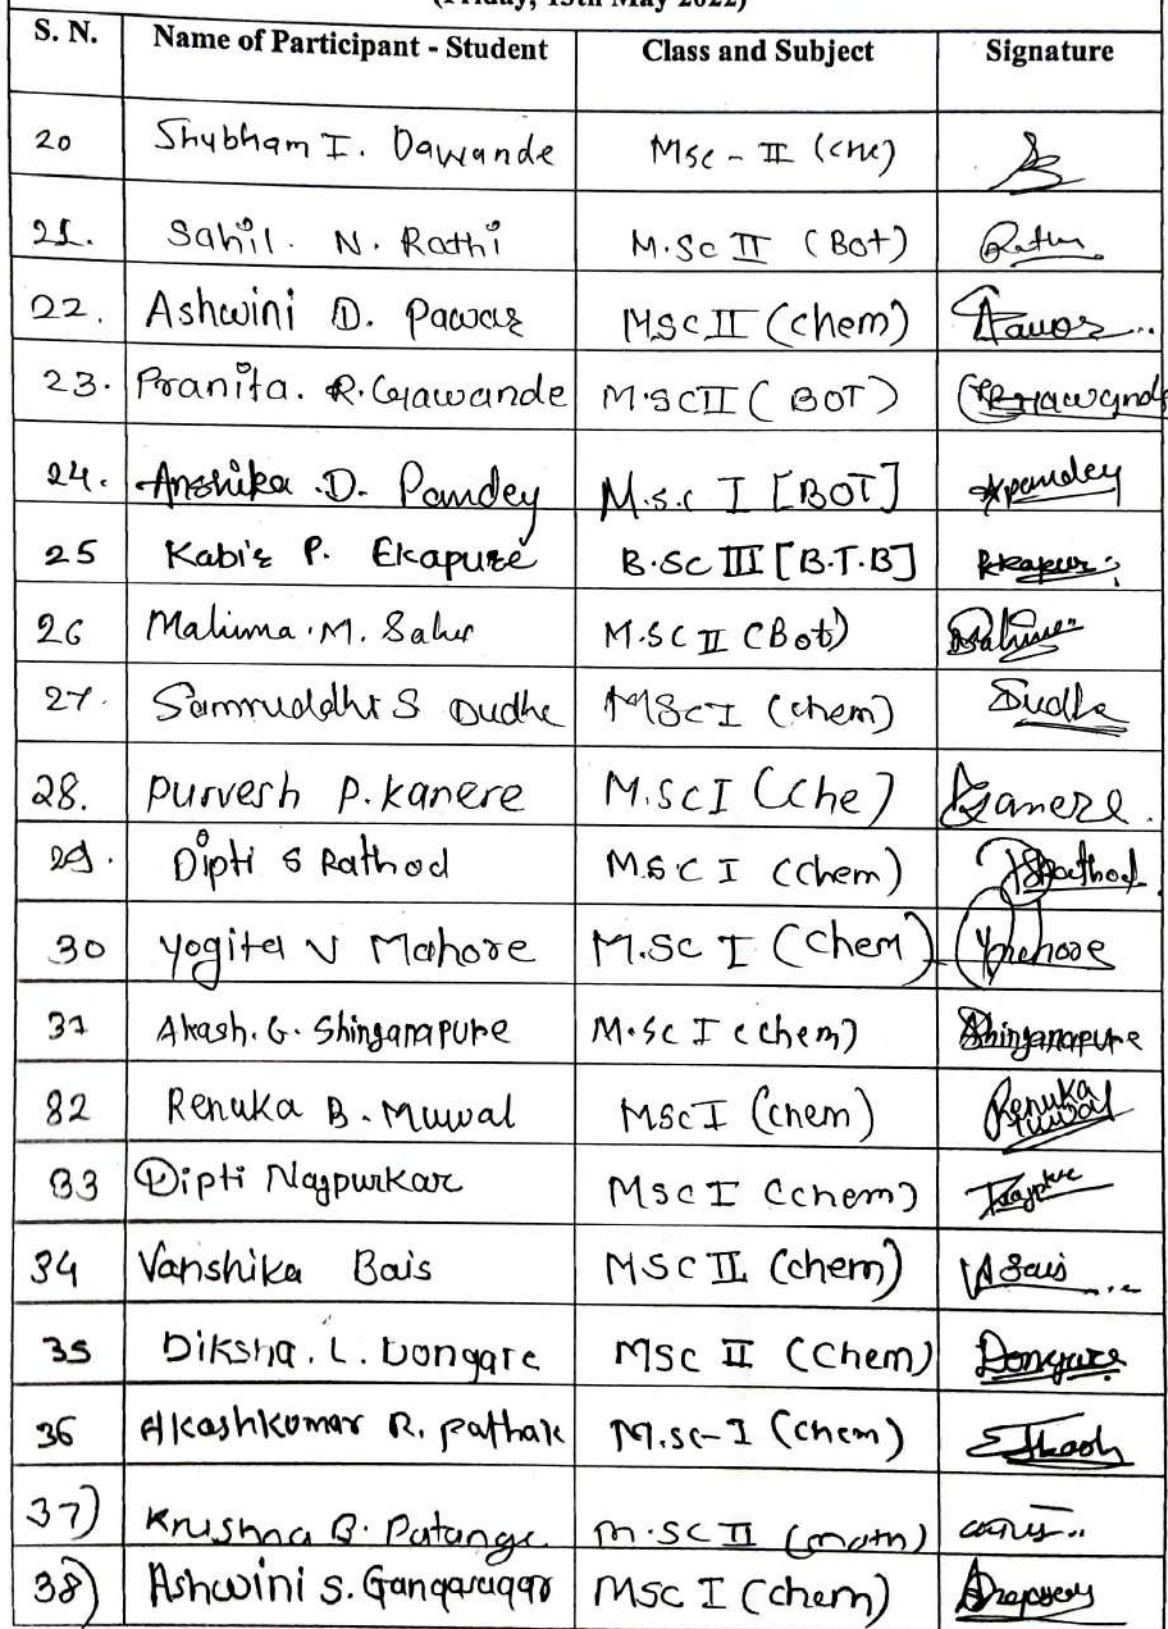 (Friday, 13th May 2022)
S. N. Name of Participant - Student Class and Subject Signature
20 Shubham I. Dawande Msc - II (che)
21. Sahil. N. Rathi M.Sc II (Bot) Rathi
22. Ashwini D. Pawar MSC II (chem) Pawar
23. Pranita. R. Gawande M.SC II (BOT) PRGawande
24. Anshika .D. Pandey M.s.c I [BOT] Apandey
25 Kabir P. Ekapure B.Sc III [B.T.B]
26 Mahima .M. Sahu M.SC II (Bot) Mahima
27. Samruddhi S Dudhe MSc I (chem) Dudhe
28. Purvesh P. Kanere M.SC I (Che) Kanere.
29. Dipti S Rathod M.S C I (Chem) DSRathod
30 Yogita V Mahore M.SC I (Chem) Ymahore
31 Akash. G. Shinganapure M.SC I (chem) Shinganapure
32 Renuka B. Muwal MSC I (chem) Renuka Muwal
33 Dipti Nagpurkar MSC I (chem)
34 Vanshika Bais MSC II (chem) VBais
35 Diksha. L. Dongare MSC II (Chem) Dongare
36 Akashkumar R. Pathak M.SC-I (Chem) Akash
37) Krushna B. Patange M.SC II (math)
38) Ashwini S. Gangasagar MSC I (chem)